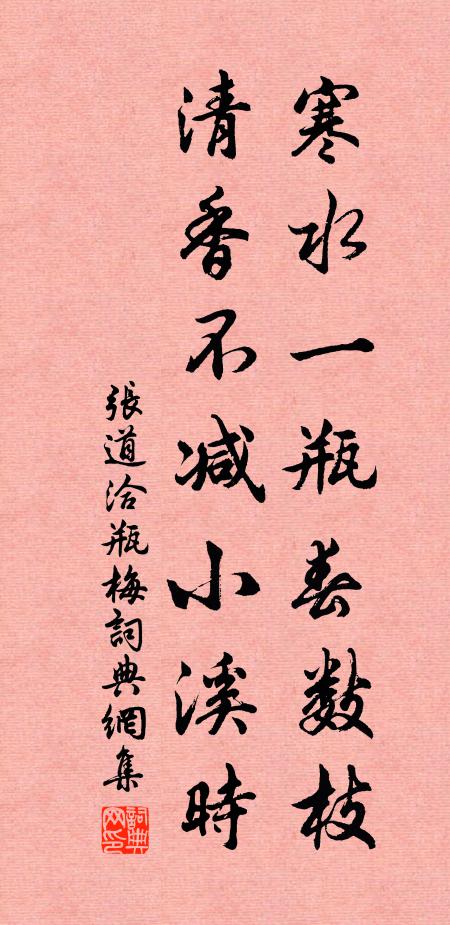 寒水一瓶春数枝
清香不减小溪時
張道洽瓶梅詞典網集
詞典網印